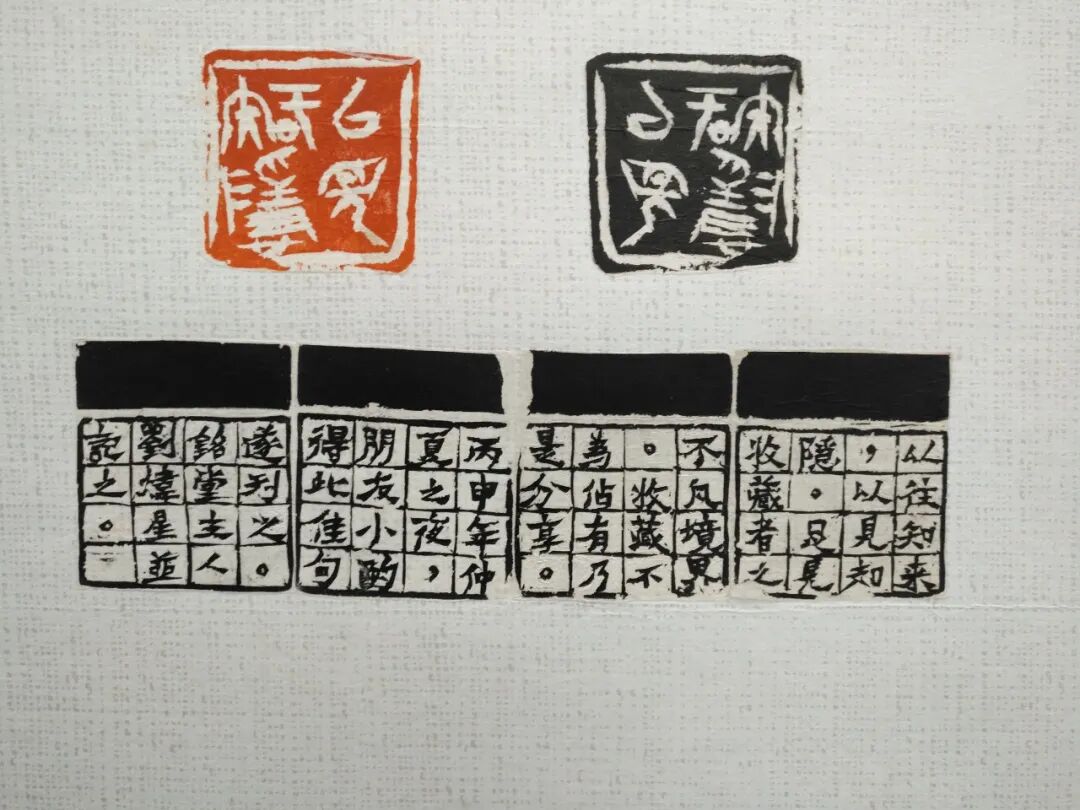 㠯見
知隱
以往知来
，以見知
隱。足見
收藏者之
不凡境界
。收藏不
為佔有乃
是分享。
丙申年仲
夏之夜，
朋友小酌
得此佳句
遂刻之。
銘堂主人
劉煒星並
記之。